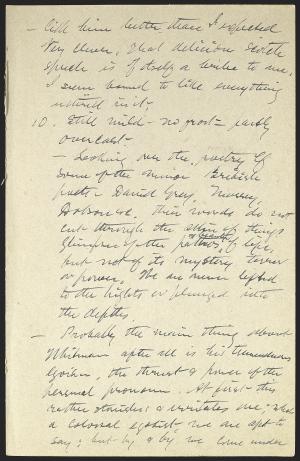 - Like him better than I expected
very clever. That delicious Scotch
speech is of itself a bribe to me.
I seem bound to like everything
uttered in it.
10. Still mild - no frost - partly
overcast -
- Looking over the poetry of
some of the minor British
poets - David Gray, Massey,
Dobson &c. Their words do not
cut through the skin of things
glimpses of the pathos, & of life,
but not of its mystery terror
or power. We are never lifted
to the heights or plunged into
the depths.
- Probably the main thing about
Whitman after all is his tremendous
the thrust & power of the
personal pronoun. At first this
rather staggers & irritates one; what
a colossal egotist we are apt to
say; but by & by we come under